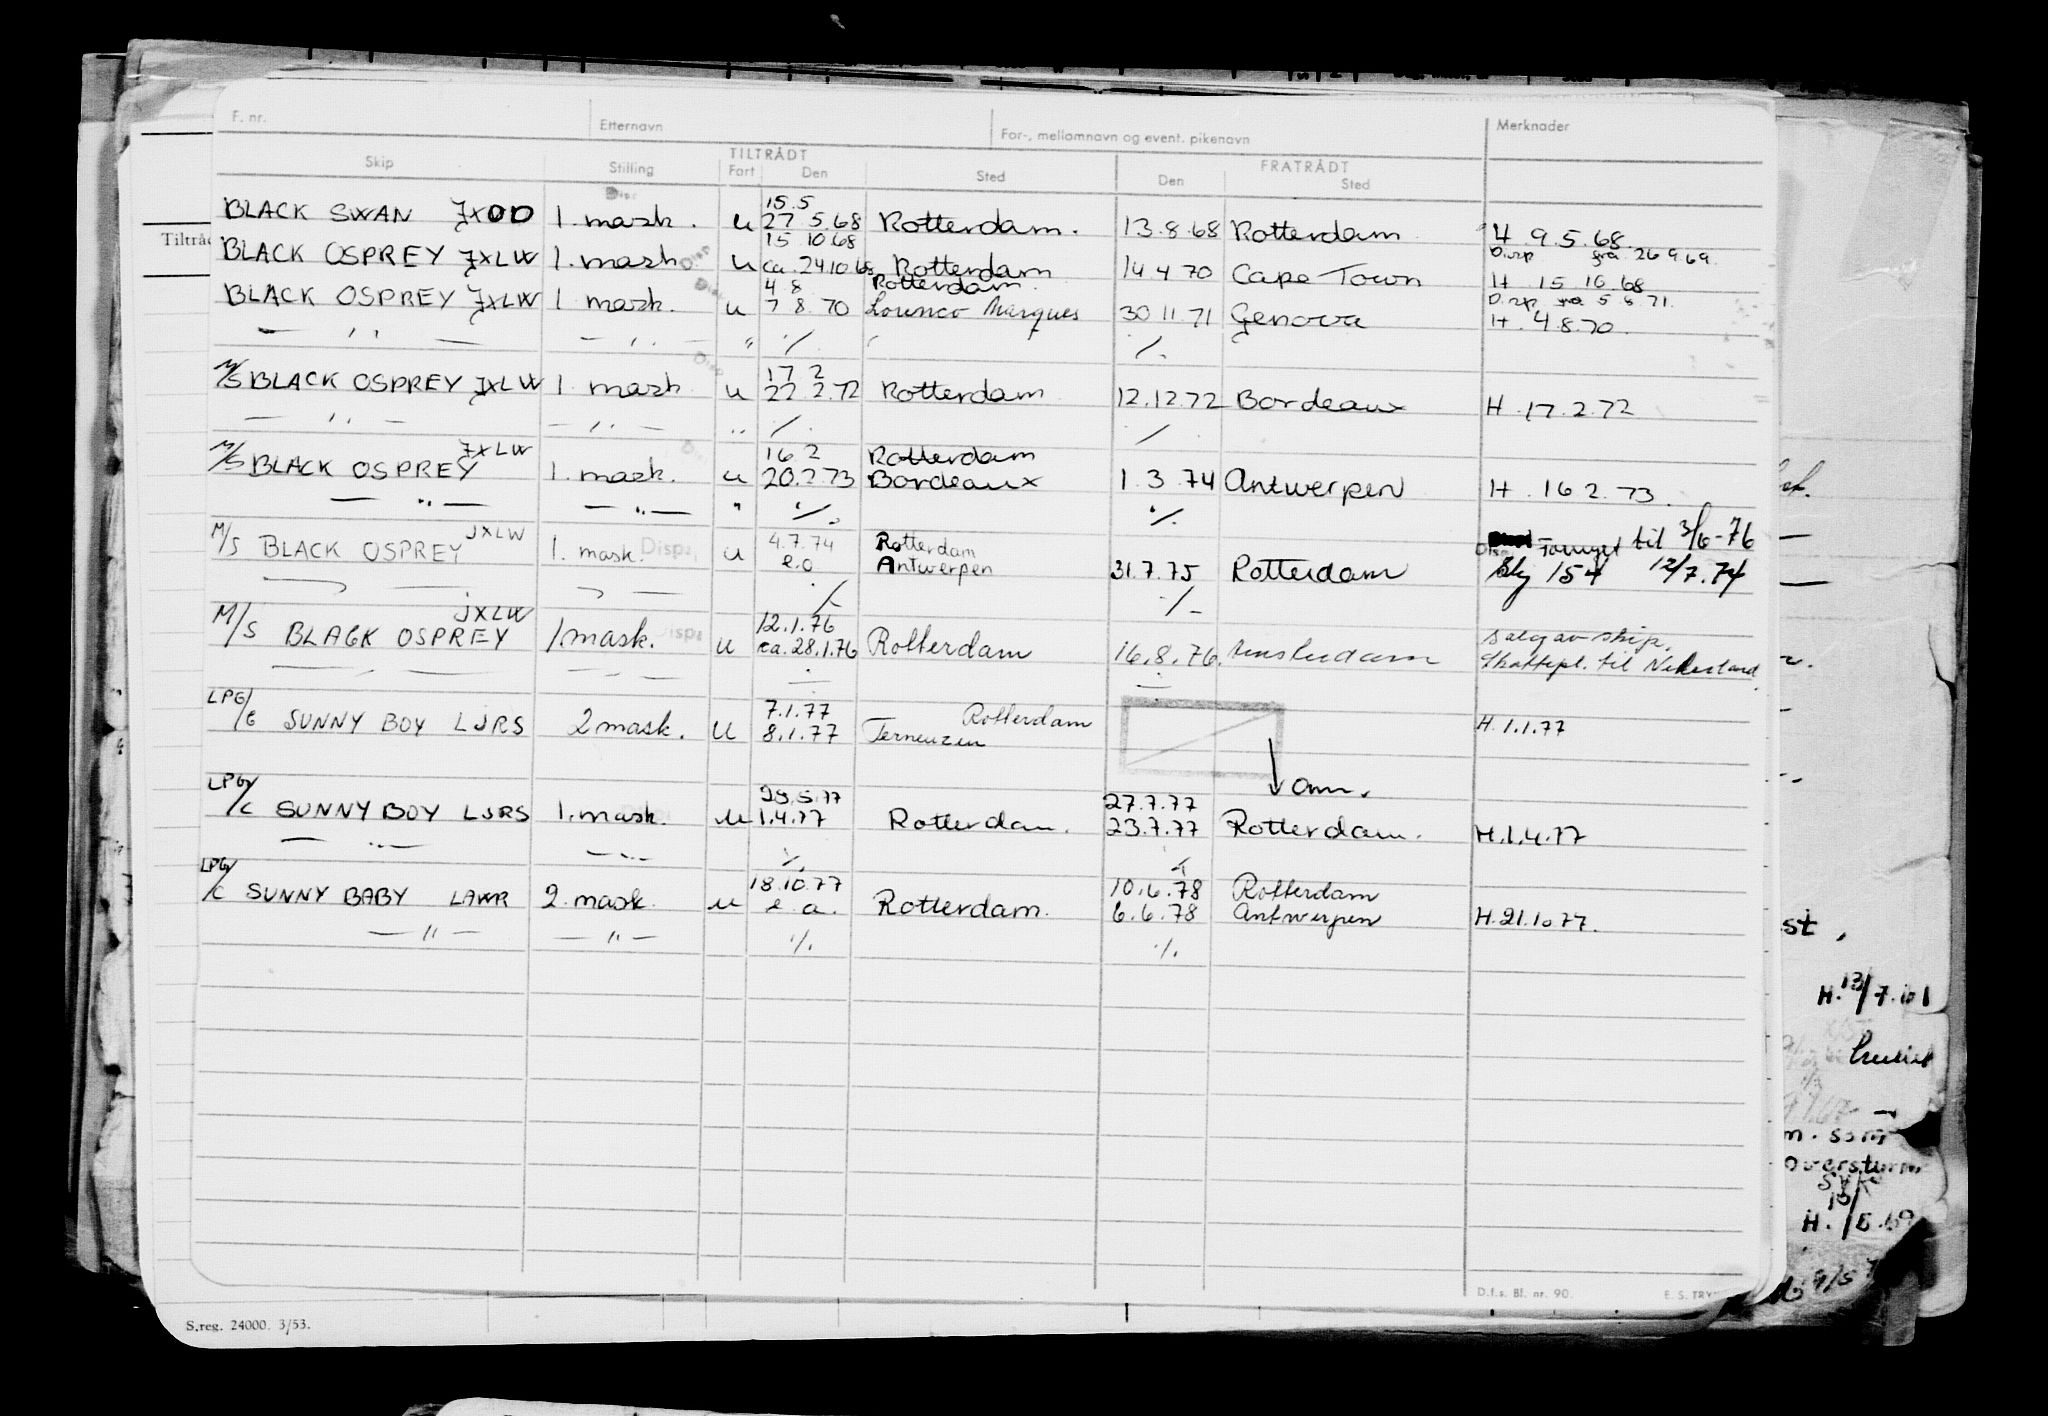 F. nr. Etternavn For-, mellomnavn og event. pikenavn Merknader
TILTRÅDT FRATRÅDT
Skip Stilling Fart Den Sted Den Sted
Disp
15.5
BLACK SWAN JXOD 1. mask. u 27.5.68 Rotterdam. 13.8.68 Rotterdam H. 9.5.68.
15 10 68 Disp fra 26 9 69.
BLACK OSPREY JXLW 1. mask Disp u ca. 24 10 68 Rotterdam 14 4 70 Cape Town H 15 10 68
4 8 Rotterdam Disp fra 5 8 71.
BLACK OSPREY JXLW 1. mask. u 7 8.70 Lourenco Marques 30 11.71 Genova H. 4.8.70.
— '' — — '' — " ·/. ·/.
17 2
M/S BLACK OSPREY JXLW 1. mask Disp u 22.2.72 Rotterdam 12.12.72 Bordeaux H. 17.2.72
— '' — — '' — " ·/. ·/.
JXLW 16 2 Rotterdam
M/S BLACK OSPREY 1. mask. u 20.2.73 Bordeaux 1.3.74 Antwerpen H. 16 2.73.
— " — — " — " ·/. ·/.
JXLW 4.7.74 Rotterdam til 3/6-76
M/S BLACK OSPREY 1. mask. Disp. u e.o Antwerpen 31.7.75 Rotterdam 154 12/7.74
·/. ·/.
JXLW 12.1.76
M/S BLACK OSPREY 1. mask. Disp u ca. 28.1.76 Rotterdam 16.8.76. Amsterdam Salg av skip.
Skattepl. til Nederland.
LPG/C SUNNY BOY LJRS 2 mask. u 7.1.77 Rotterdam H. 1.1.77
8.1.77 Terneuzen
om.
29.5.77 27.7.77
LPG/C SUNNY BOY LJRS 1. mask. u 1.4.77 Rotterdam. 23.7.77 Rotterdam. H. 1.4.77
— " — — " — ·/. ·/.
18.10.77 10.6.78 Rotterdam
LPG/C SUNNY BABY LAWR 2. mask. u e.a. Rotterdam. 6.6.78 Antwerpen H. 21.10.77.
— " — — " — ·/. ·/.
D.f.s. Bl. nr. 90. E. S. TRY
S.reg. 24000. 3/53.
Tiltråd
st.
H. 13/7.61
m. som
overstyrm.